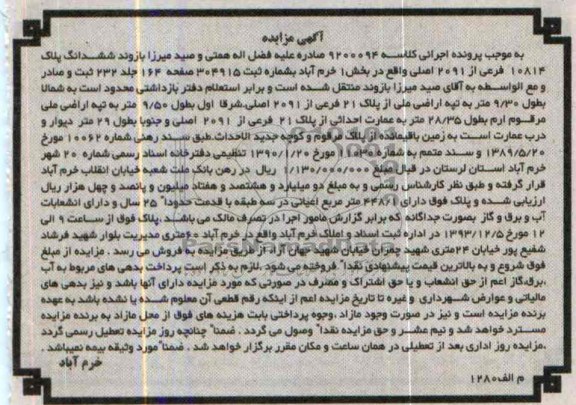 آگهی مزایده
به موجب پرونده اجرائی کلاسه ۹۲۰۰۰۹۴ صادره علیه فضل اله همتی و صید میرزا بازوند ششدانگ پلاک
۱۰۸۱۴ فرعی از ۲۰۹۱ اصلی واقع در بخش۱ خرم آباد بشماره ثبت ۳۰۴۹۱۵ صفحه ۱۶۴ جلد ۲۳۲ ثبت و صادر
و مع الواسطه به آقای صید میرزا بازوند منتقل شده است و برابر استعلام دفتر بازداشتی محدود است به شمالا
بطول ۹/۳۰ متر به تپه اراضی ملی از پلاک ۲۱ فرعی از ۲۰۹۱ اصلی.شرقا اول بطول ۹/۵۰ متر به تپه اراضی ملی
مرقوم ارم بطول ۲۸/۳۵ متر به عمارت احداثی از پلاک ۲۱ فرعی از ۲۰۹۱ اصلی و جنوبا بطول ۲۹ متر دیوار و
درب عمارت است به زمین باقیمانده از پلاک مرقوم و کوچه جدید الاحداث.طبق سند رهنی شماره ۱۰۰۶۲ مورخ
۱۳۸۹/۵/۲۰ و سند متمم به شماره مورخ ۱۳۹۰/۱/۲۰ تنظیمی دفترخانه اسناد رسمی شماره ۲۰ شهر
خرم آباد استان لرستان در قبال مبلغ ۱/۱۳۰/۰۰۰/۰۰۰ ریال در رهن بانک ملت شعبه خیابان انقلاب خرم آباد
قرار گرفته و طبق نظر کارشناس رسمی و به مبلغ دو میلیارد و هشتصد و هفتاد میلیون و پانصد و چهل هزار ریال
ارزیابی شده و پلاک فوق دارای ۴۴۸/۱ متر مربع اعیانی در سه طبقه با قدمت حدودا" ۲۵ سال و دارای انشعابات
آب و برق و گاز بصورت جداگانه که برابر گزارش مامور اجرا در تصرف مالک می باشند .پلاک فوق از ساعت ۹ الی
۱۲ مورخ ۱۳۹۳/۱۲/۵ در اداره ثبت اسناد و املاک خرم آباد واقع در خرم آباد ۶۰متری مدیریت بلوار شهید فرشاد
شفیع پور خیابان ۲۴متری شهید جعفران خیابان شهید جهان آرا، از طریق مزایده به فروش می رسد . مزایده از مبلغ
فوق شروع و به بالاترین قیمت پیشنهادی نقدا" فروخته می شود .لازم به ذکر است پرداخت بدهی های مربوط به آب
،برق،گاز اعم از حق انشعاب و یا حق اشتراک و مصرف در صورتی که مورد مزایده دارای آنها باشد و نیز بدهی های
مالیاتی و عوارض شهرداری و غیره تا تاریخ مزایده اعم از اینکه رقم قطعی آن معلوم شده یا نشده باشد به عهده
برنده مزایده است و نیز در صورت وجود مازاد ،وجوه پرداختی بابت هزینه های فوق از محل مازاد به برنده مزایده
مسترد خواهد شد و نیم عشر و حق مزایده نقدا" وصول می گردد . ضمنا" چنانچه روز مزایده تعطیل رسمی گردد
،مزایده روز اداری بعد از تعطیلی در همان ساعت و مکان مقرر برگزار خواهد شد . ضمنا" مورد وثیقه بیمه نمیباشد .
خرم آباد
م الف ۱۲۸۰